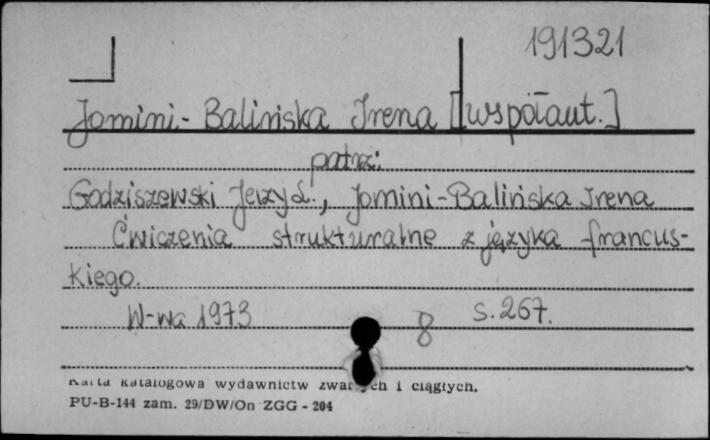 191321
Jomini-Balińska Irena [współaut.]
patrz:
Godziszewski Jerzy L., Jomini-Balińska Irena
Ćwiczenia strukturalne z języka francus-
kiego.
W-wa 1973 8 s. 267.
Karta katalogowa wydawnictw zwartych i ciągłych.
PU-B-144 zam. 29/DW/On ZGG - 204